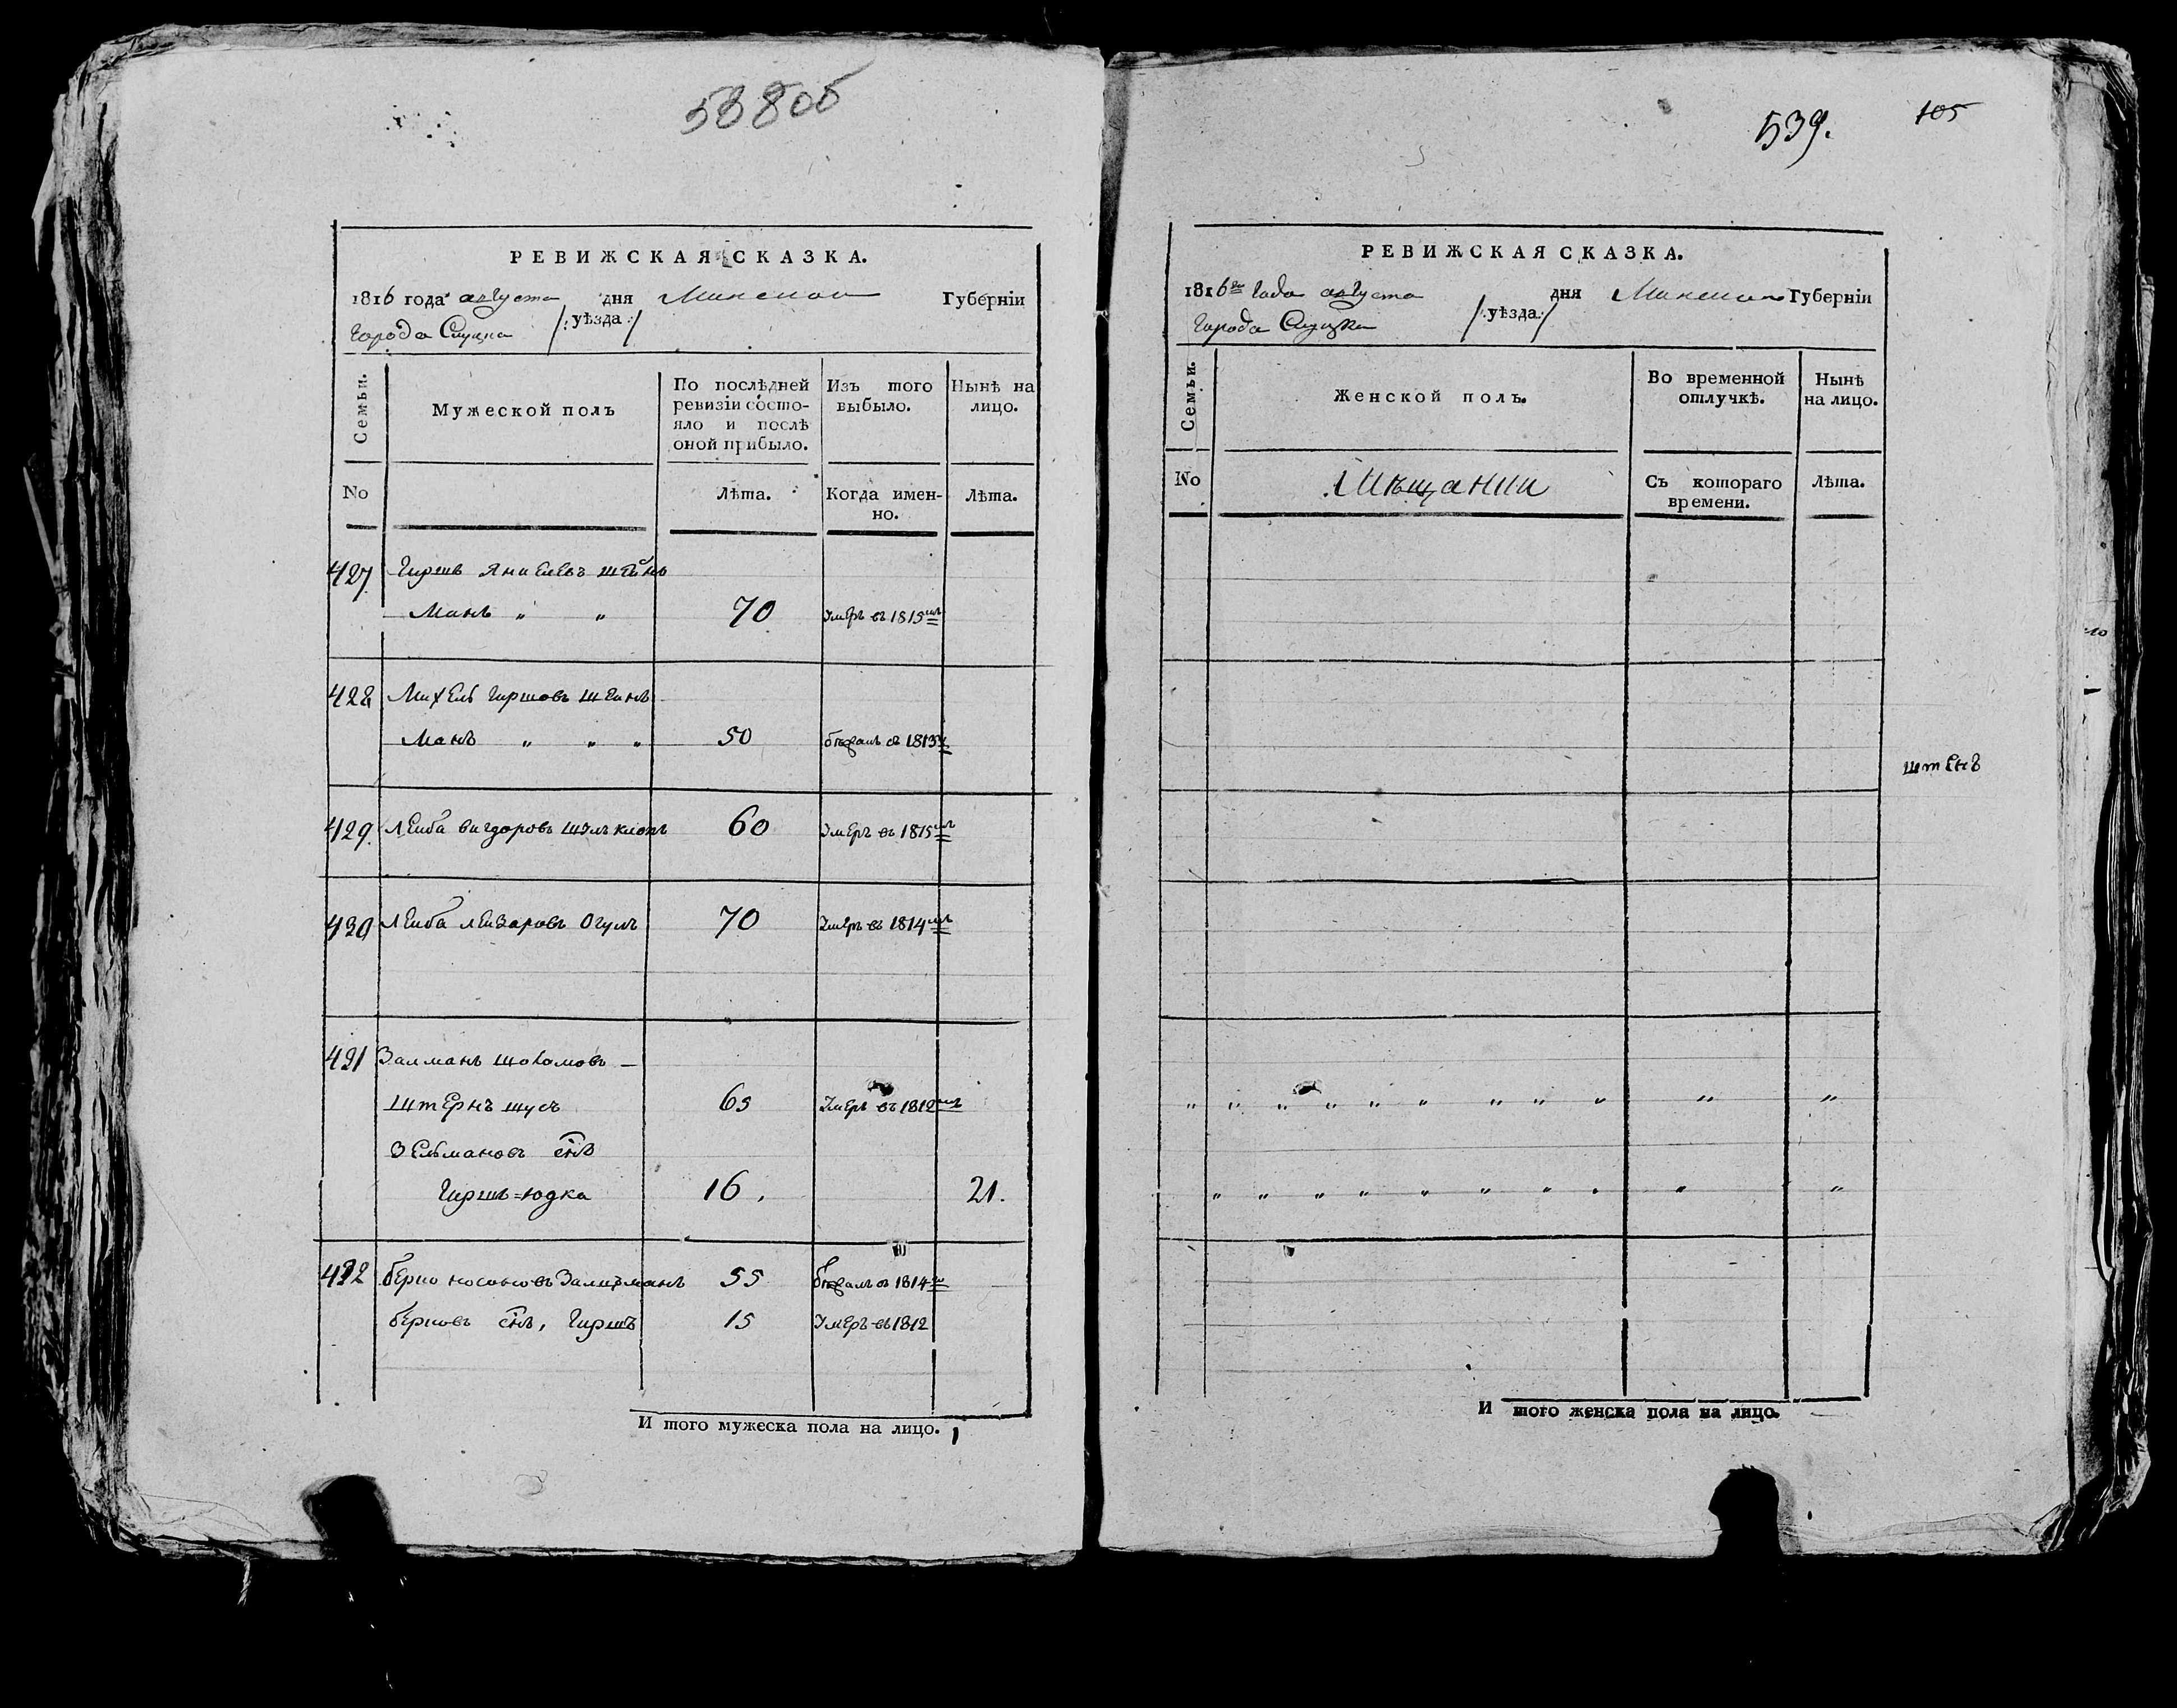 538об
РЕВИЖСКАЯ СКАЗКА.
1816 года августа дня Минской Губерніи
города Слуцка /: уѣзда :/
Семьи.
Мужеской полъ
По послѣдней ревизіи состо-
яло и послѣ
оной прибыло.
Изъ того
выбыло.
Нынѣ на
лицо.
No
Лѣта.
Когда имен-
но.
Лѣта.
427 Гиршъ Янкелевъ штейнъ
Манъ " " 70 Умеръ въ 1815мъ
428 Михель Гиршовъ штейнъ
Манъ " " " 50 въ 1813
429. Лейба вигдоровъ 60 Умеръ въ 1815мъ
430 Лейба лейзаровъ Огулъ 70 Умеръ въ 1814мъ
431 Залманъ —
штернъ шусъ 65 Умеръ въ 1812мъ
Зельмановъ снъ
Гиршъ=юдка 16. 21.
432 берко носоновъ Залцманъ 55 въ 1814
берковъ снъ, Гиршъ 15 Умеръ въ 1812
И того мужеска пола на лицо. 1
539.
105
РЕВИЖСКАЯ СКАЗКА.
1816го года августа дня Минской Губерніи
города Слуцка /: уѣзда :/
Семьи.
Женской полъ.
Во временной
отлучкѣ.
Нынѣ
на лицо.
No
Мѣщании
Съ котораго
времени.
Лѣта.
" " " " " " " " " " "
" " " " " " " " " "
И того женска пола на лицо. —